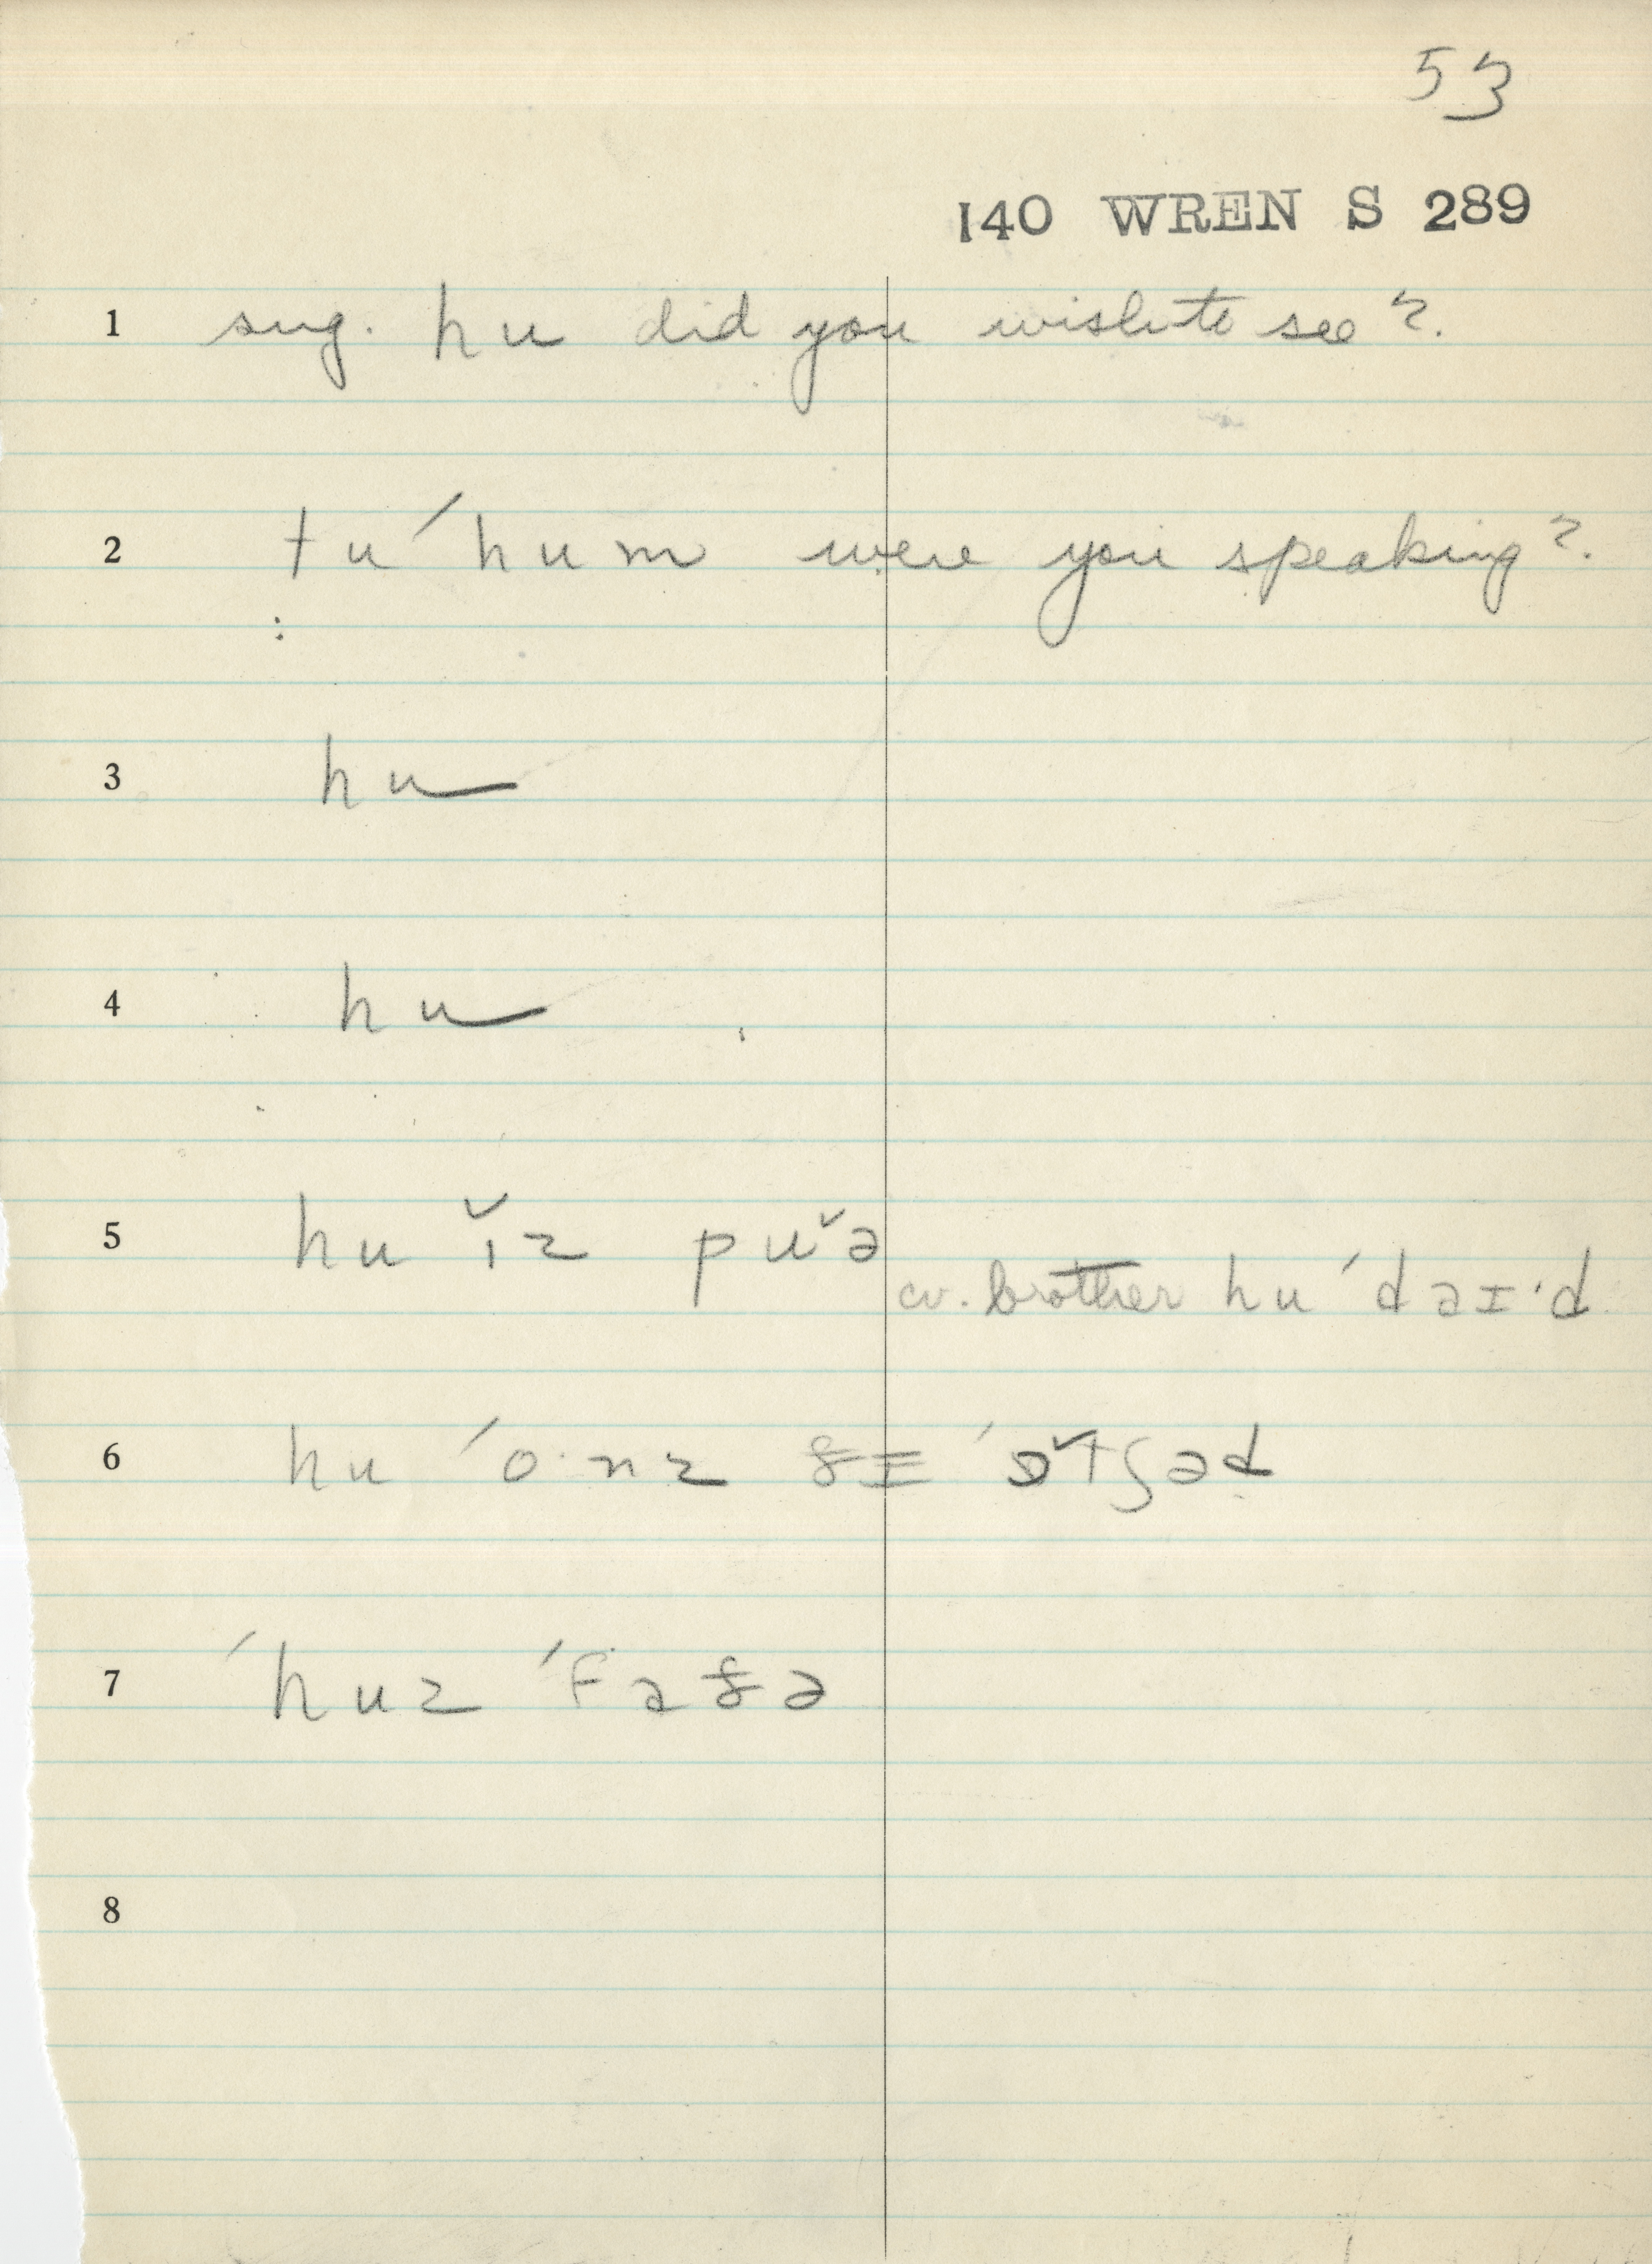 53
140 WREN S 289
1 sug. hu did you wish to see?.
2 tu ˊhum were you speaking?.
3 hu
4 hu
5 hu ɪ̆z pʊ̆ə
cv. brother hu ˊdəɪ·d
6 hu ˊo·nz ðɪ ˊɔ̆tʃəd
7 ˊhuz ˊfɑðə
8